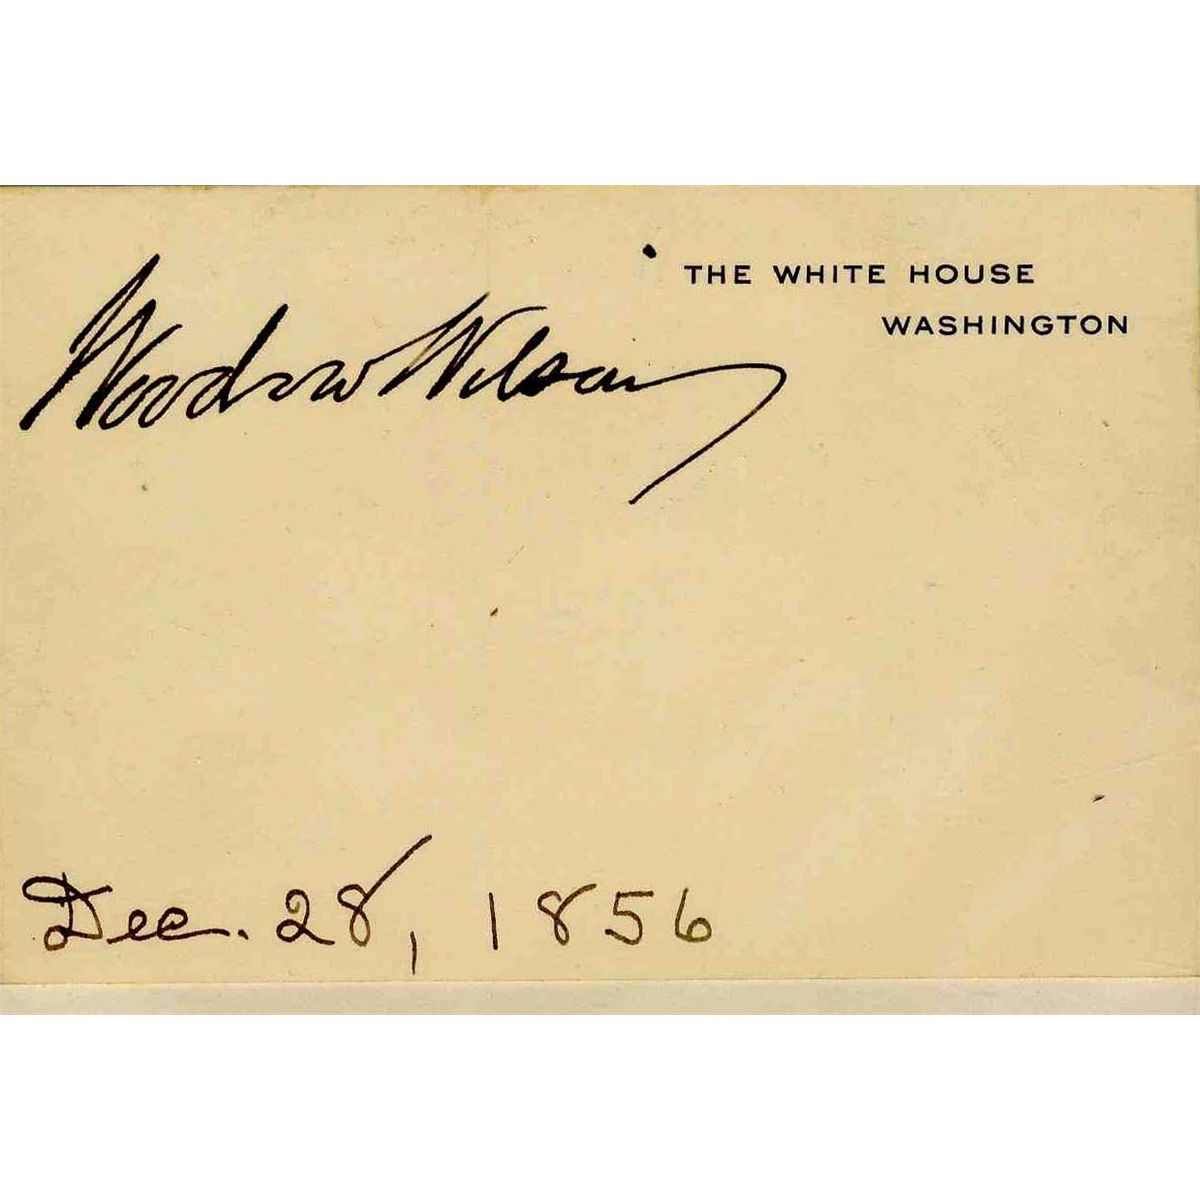 THE WHITE HOUSE
WASHINGTON
Woodrow Wilson
Dec. 28, 1856